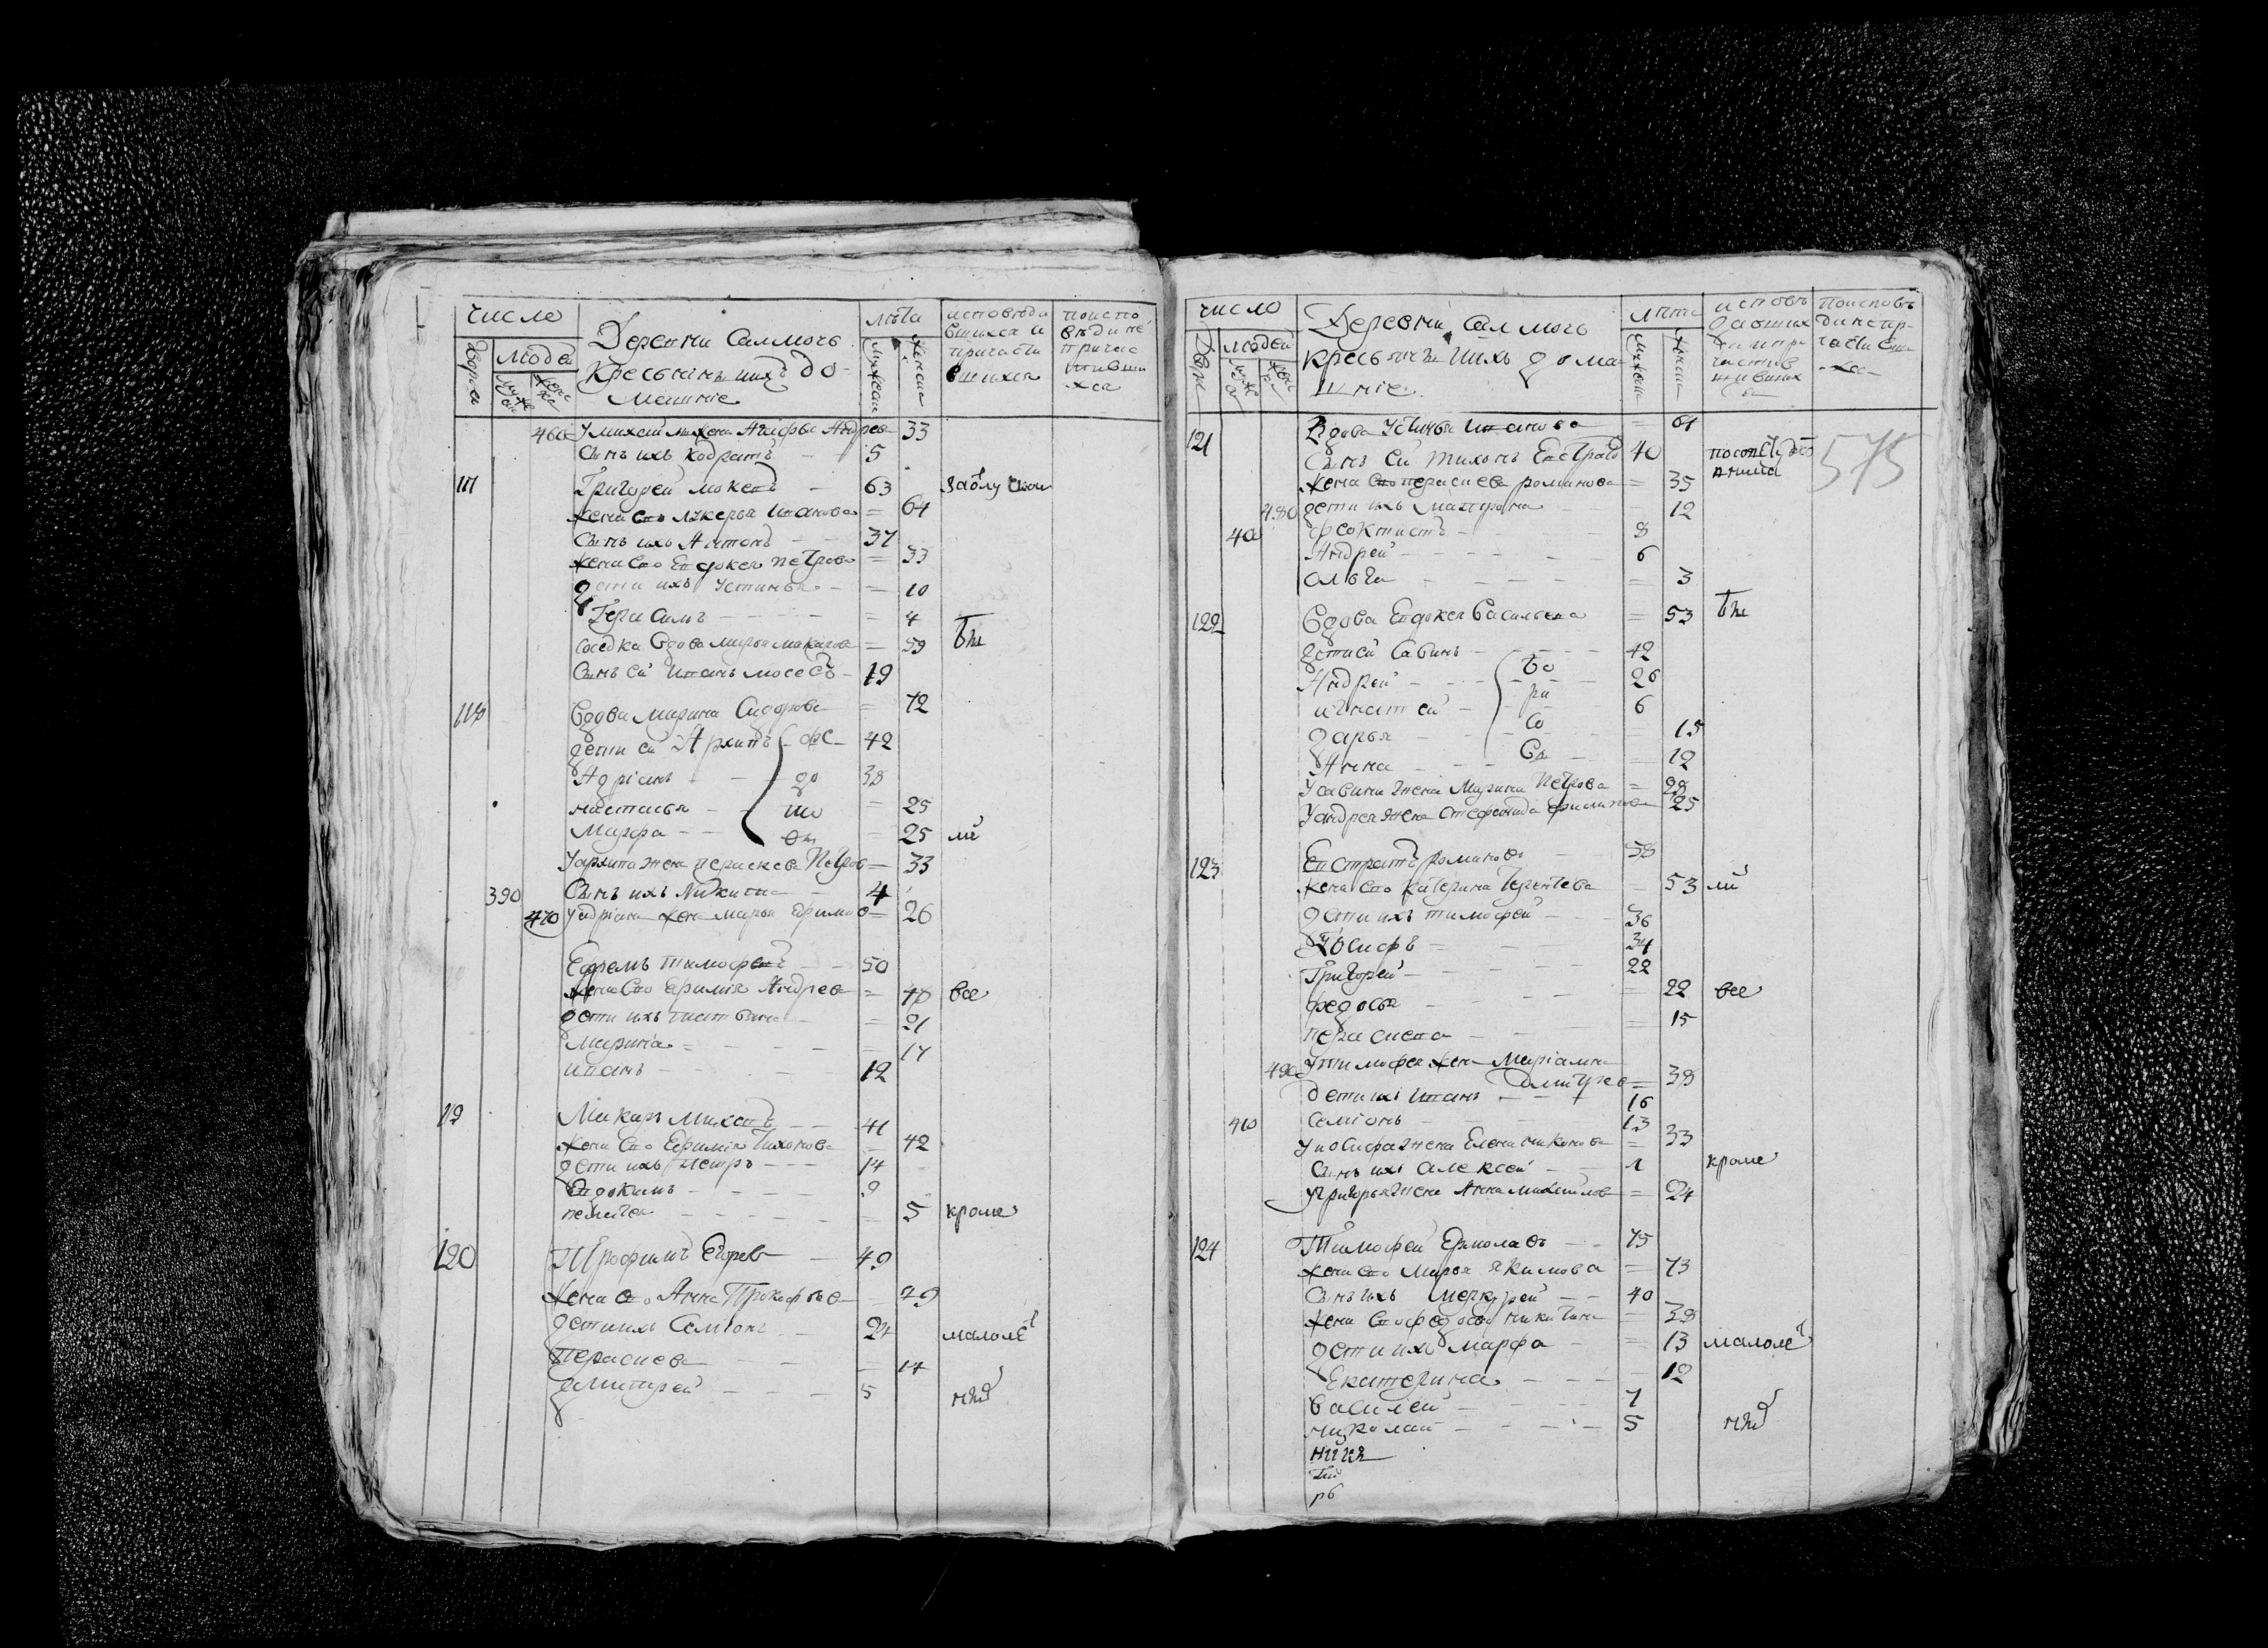 число
Деревни Салмочь
лѣта
исповѣда
вшихся и
причасти
вшихся
поиспо
вѣди не
причас
тивши
хся
дворы
людей
мужескъ
женска
Крестьяне и ихъ до-
машніе
мужескъ
женска
460 У михея жена Агафья Андрева = 33
Сынъ ихъ Кодратъ 5
117 Григорей мокеевъ 63
Жена ево лукерья иванова = 64
Сынъ ихъ Антонъ 37
Жена ево Евдокея петрова = 33
дети ихъ устинья = 10
Герасимъ = 4
соседка вдова марья макарова = 59
Сынъ ей иванъ мосеевъ 19
118 вдова марина Сидорова = 72
дети ей Архипъ фе 42
Адріанъ до 38
настасья = 25
Марфа = 25 ли
У архипа жена пераскева Петров = 33
390 Сынъ ихъ Никита 4
470 У адріана жена марья Ефимов = 26
Ефремъ тимофеевъ 50
Жена ево ефимія Андрева = 48 все
дети ихъ татьяна = 21
Марина = 17
иванъ 12
19 Макаръ михеевъ 41
Жена ево Ефимія Тихонова = 42
дети ихъ петръ 14
Евдокимъ 9
пелагея = 5 кроме
120 Трофимъ Егоревъ 49
Жена ево Анна Прокофьева 49
дети ихъ Семіонъ 24 малолѣт
Перасцева = 14
Дмитрей 5
число
Деревни Салмочь
лѣта
дворы
людей
крестьяне ихъ дома-
шніе
575
121 Вдова устинья иванова = 61
Сынъ ей тихонъ Евстратов 40
Жена ево перасцева романова = 35
480 дети ихъ матрона 12
400 феоктистъ 8
Андрей 6
ольга = 3
122 Вдова Евдокея васильева = 53
дети ей Савинъ 42
Андрей бо 26
игнатей ри 6
дарья со = 15
Анна = 12
У савина жена Марина Петрова = 28
У андрея жена стефанида филипова 25
123 Евстратъ романовъ 58
Жена ево катерина терентева 53 ли
дети ихъ тимофей 36
Іосифъ 34
Григорей 22
федосья = 22 все
перасцева = 15
490 У тимофея жена Маріамна
Дмитрева = 38
дети ихъ иванъ 16
410 Семіонъ 13
У иосифа жена Елена никонова = 33
Сынъ ихъ алексей 1 кроме
У григорья жена Анна михайлов = 24
124 Тимофей Ермолаевъ 75
Жена ево Марья якимова = 73
Сынъ ихъ меркурей 40
Жена ево федосья никитина = 38
дети ихъ марфа = 13 малолѣт
Екатерина 12
василей 7
николай 5